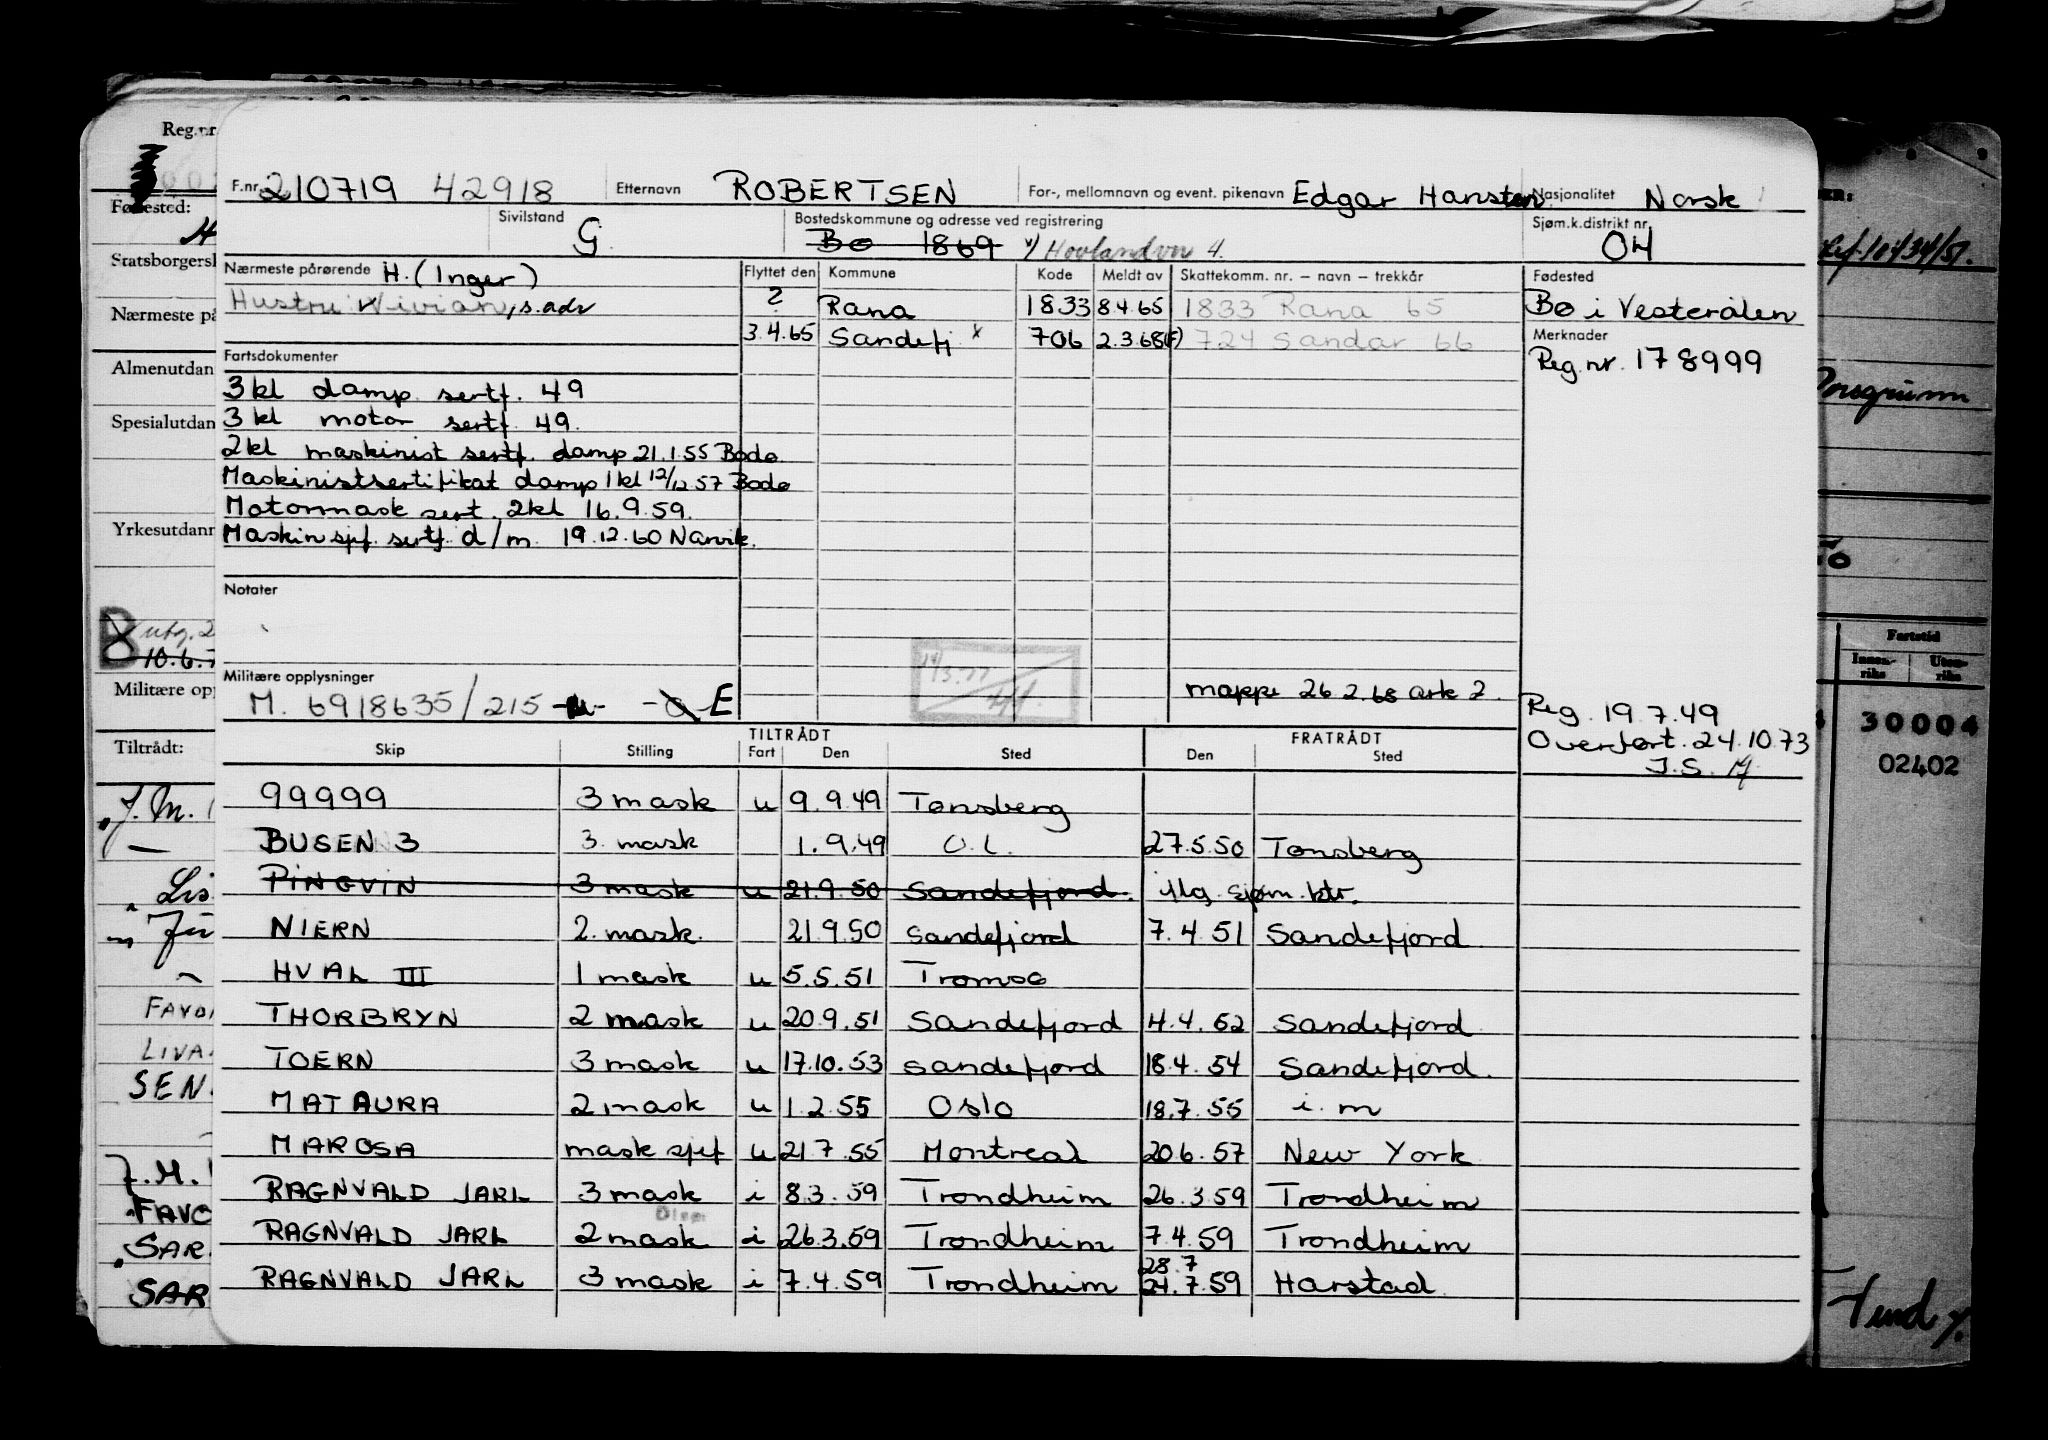 Reg.nr
F.nr. 210719 42918 Etternavn ROBERTSEN For-, mellomnavn og event. pikenavn Edgar Hansten Nasjonalitet Norsk
Sivilstand G Bostedskommune og adresse ved registrering Bø 1869 v/ Hovlandvn 4. Sjøm.k.distrikt nr. OH
Nærmeste pårørende H. (Inger) Flyttet den Kommune Kode Meldt av Skattekomm. nr. – navn – trekkår Fødested
Hustru Wivian, s. adr ? Rana 1833 8.4.65 1833 Rana 65 Bø i Vesterålen
3.4.65 Sandefj x 706 2.3.68(F) 724 Sandar 66 Merknader
Fartsdokumenter Reg. nr. 178999
3 kl damp sertf. 49
3 kl motor sertf. 49.
2 kl maskinist sertf. damp 21.1.55 Bodø
Maskinistsertifikat damp 1 kl 12/12 57 Bodø
Motormask sert. 2kl 16.9.59.
Maskin sjef. sertf. d/m. 19.12.60 Narvik.
Notater
Militære opplysninger mappe 26.2.68 ark 2.
M. 6918635/215 E Reg. 19.7.49
Overført. 24.10.73
J.S.
TILTRÅDT FRATRÅDT
Skip Stilling Fart Den Sted Den Sted
99999 3 mask u 9.9.49 Tønsberg
BUSEN 3 3. mask 1.9.49 O.L. 27.5.50 Tønsberg
PINGVIN 3 mask u 21.9.50 Sandefjord. ifлg. sjøm. ktr.
NIERN 2. mask. 21.9.50 Sandefjord 7.4.51 Sandefjord
HVAL III 1 mask u 5.5.51 Tromsø
THORBRYN 2 mask u 20.9.51 Sandefjord 4.4.52 Sandefjord
TOERN 3 mask u 17.10.53 Sandefjord 18.4.54 Sandefjord.
MATAURA 2 mask u 1.2.55 Oslo 18.7.55 i. m
MAROSA mask sjef u 21.7.55 Montreal 20.6.57 New York
RAGNVALD JARL 3 mask i 8.3.59 Trondheim 26.3.59 Trondheim
Disp.
RAGNVALD JARL 2 mask i 26.3.59 Trondheim 7.4.59 Trondheim
28.7
RAGNVALD JARL 3 mask i 7.4.59 Trondheim 24.7.59 Harstad
Fødested:
Statsborgersk
Nærmeste på
Almenutdan
Spesialutdan
Yrkesutdann
utg. 2
10.6.7
Militære opp
Tiltrådt:
J.M.
Lis
FAVO
LIVA
SEN
J.M.
FAVO
SAR
SAR
Fartstid
Innen-riks Uten-riks
30004
02402